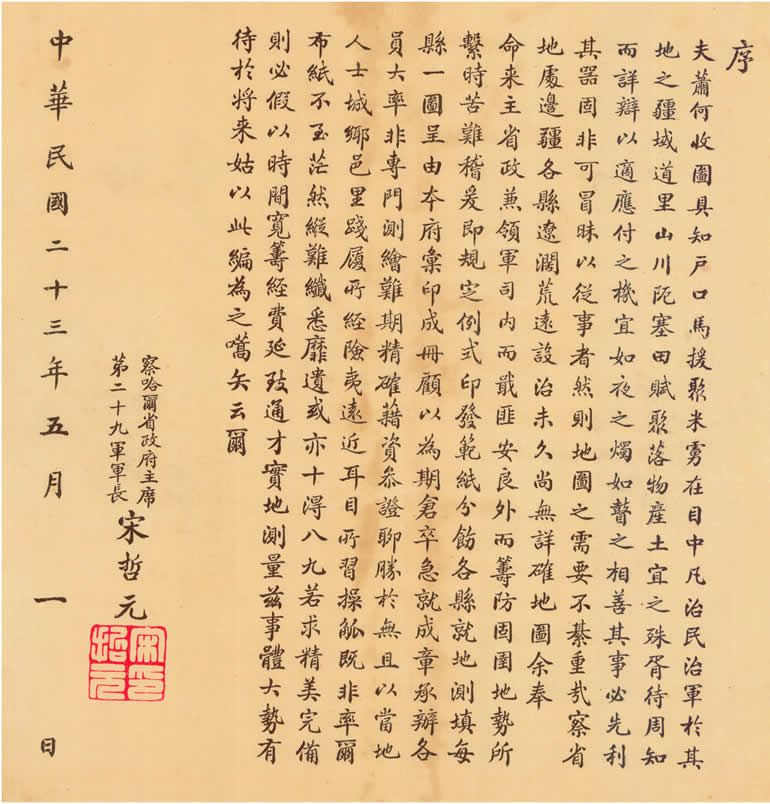 序
夫蕭何收圖具知戶口馬援聚米虜在目中凡治民治軍於其
地之疆域道里山川阨塞田賦聚落物產土宜之殊胥待周知
而詳辯以適應付之機宜如夜之燭如瞽之相善其事必先利
其器固非可冒昧以從事者然則地圖之需要不綦重哉察省
地處邊疆各縣遼濶荒遠設治未久尚無詳確地圖余奉
命來主省政兼領軍司內而戢匪安良外而籌防固圉地勢所
繫時苦難稽爰即規定例式印發範紙分飭各縣就地測填每
縣一圖呈由本府彙印成冊顧以為期倉卒急就成章承辦各
員大率非專門測繪難期精確藉資參證聊勝於無且以當地
人士城鄉邑里踐履所經險夷遠近耳目所習操觚既非率爾
布紙不至茫然縱難纖悉靡遺或亦十得八九若求精美完備
則必假以時間寬籌經費延致通才實地測量茲事體大勢有
待於將來姑以此編為之嚆矢云爾
察哈爾省政府主席
第二十九軍軍長
宋哲元
宋印哲元
中華民國二十三年五月一日